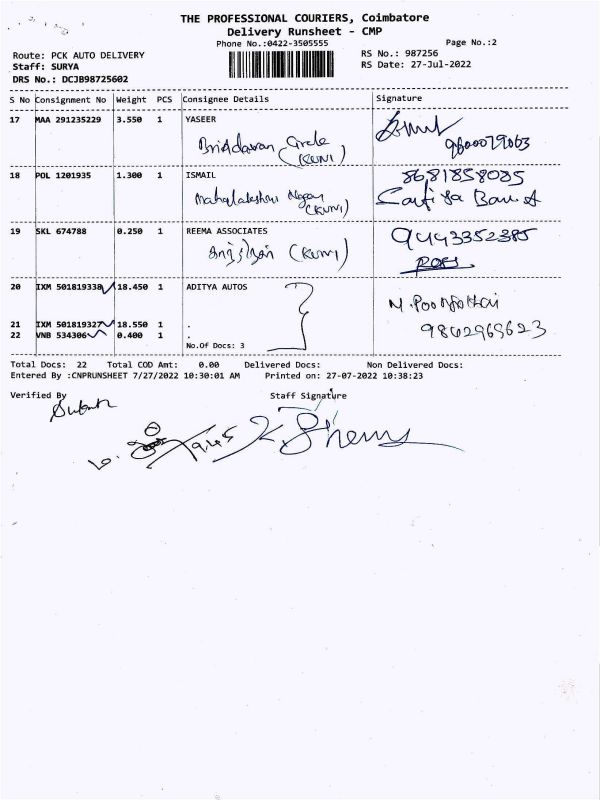 THE PROFESSIONAL COURIERS, Coimbatore
Delivery Runsheet - CMP
Phone No.:0422-3505555 Page No.:2
Route: PCK AUTO DELIVERY RS No.: 987256
Staff: SURYA RS Date: 27-Jul-2022
DRS No.: DCJB98725602
S No Consignment No Weight PCS Consignee Details Signature
17 MAA 291235229 3.550 1 YASEER
Circle
(KUNI)
18 POL 1201935 1.300 1 ISMAIL 8681858085
Nagar
(KUNI)
19 SKL 674788 0.250 1 REEMA ASSOCIATES 9443352385
(KUNI)
20 IXM 501819338 18.450 1 ADITYA AUTOS
21 IXM 501819327 18.550 1 . 9842969623
22 VNB 534306 0.400 1 .
No.Of Docs: 3
Total Docs: 22 Total COD Amt: 0.00 Delivered Docs: Non Delivered Docs:
Entered By :CNPRUNSHEET 7/27/2022 10:30:01 AM Printed on: 27-07-2022 10:38:23
Verified By Staff Signature